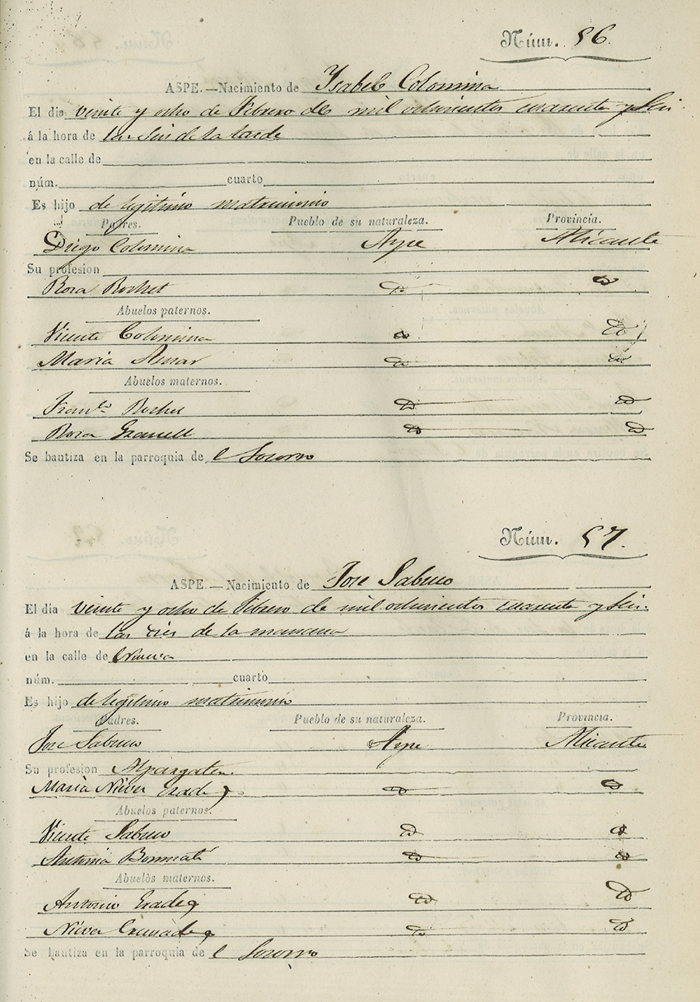 Núm. 56.
ASPE.—Nacimiento de Ysabel Colomina
El dia veinte y ocho de Febrero de mil ochocientos cuarenta y seis
á la hora de las seis de la tarde
en la calle de
núm. cuarto
Es hijo de legitimo matrimonio
Padres. Pueblo de su naturaleza. Provincia.
Diego Colomina Aspe Alicante
Su profesion
Rosa id id
Abuelos paternos.
Vicente Colomina id id
Maria id id
Abuelos maternos.
Franco. id id
Rosa id id
Se bautiza en la parroquia de l Socorro
Núm. 57.
ASPE.—Nacimiento de Jose Sabuco
El dia veinte y ocho de Febrero de mil ochocientos cuarenta y seis.
á la hora de las dies de la manana
en la calle de Nueva
núm. cuarto
Es hijo de legitimo matrimonio
Padres. Pueblo de su naturaleza. Provincia.
Jose Sabuco Aspe Alicante
Su profesion Alpargatero
Maria id id
Abuelos paternos.
Vicente Sabuco id id
Antonia id id
Abuelos maternos.
Antonio id id
id id
Se bautiza en la parroquia de l Socorro